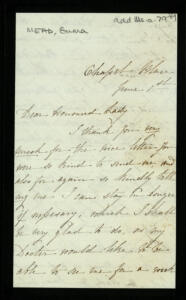 MEAD, Emma
add Ms. a.
Chapel Place
June 1st
Dear Honoured Lady
I thank you very
much for the nice letter you
were so kind to send me and
also for again so kindly telling
me I can stay in longer
if necessary, which I shall
be very glad to do, as my
Doctor would like to be
able to see me for a week